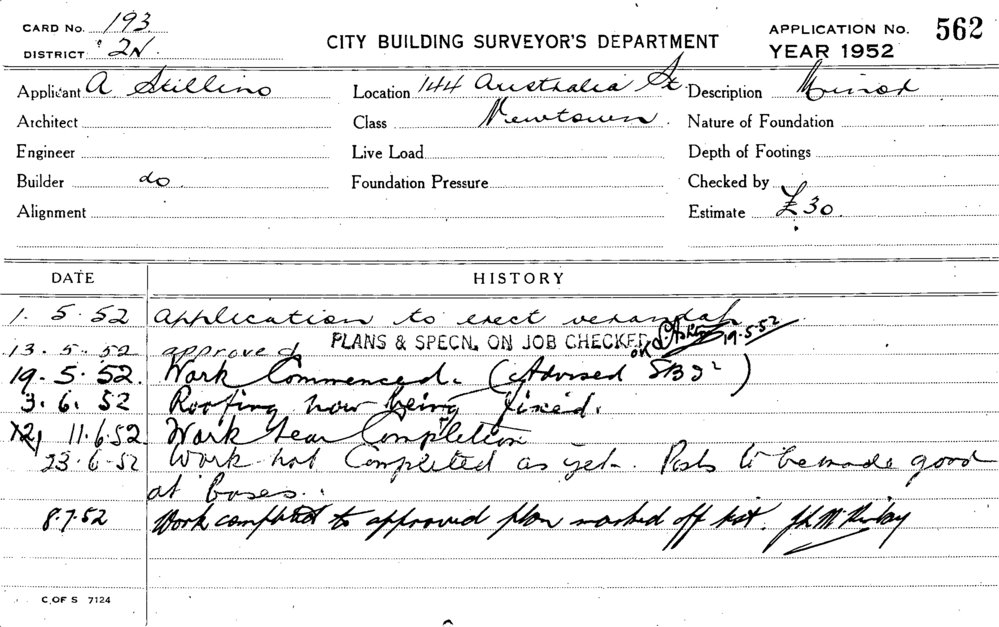 CARD No. 193
DISTRICT 2N.
CITY BUILDING SURVEYOR'S DEPARTMENT
APPLICATION No. 562
YEAR 1952
Applicant A Stillino Location 144 Australia St Description Minor
Architect Class Newtown. Nature of Foundation
Engineer Live Load Depth of Footings
Builder do Foundation Pressure Checked by
Alignment Estimate £30.
DATE HISTORY
1. 5. 52 Application to erect verandah
13. 5. 52 approved PLANS & SPECN. ON JOB CHECKED OK 19.5.52
19. 5. 52. Work Commenced. (Advised
3. 6. 52 Roofing now being fixed.
11.6.52 Work near Completion
23.6.52 Work not Completed as yet. Posts to be made good
at bases.
8.7.52 Work completed to approved plan marked off list.
C OF S 7124